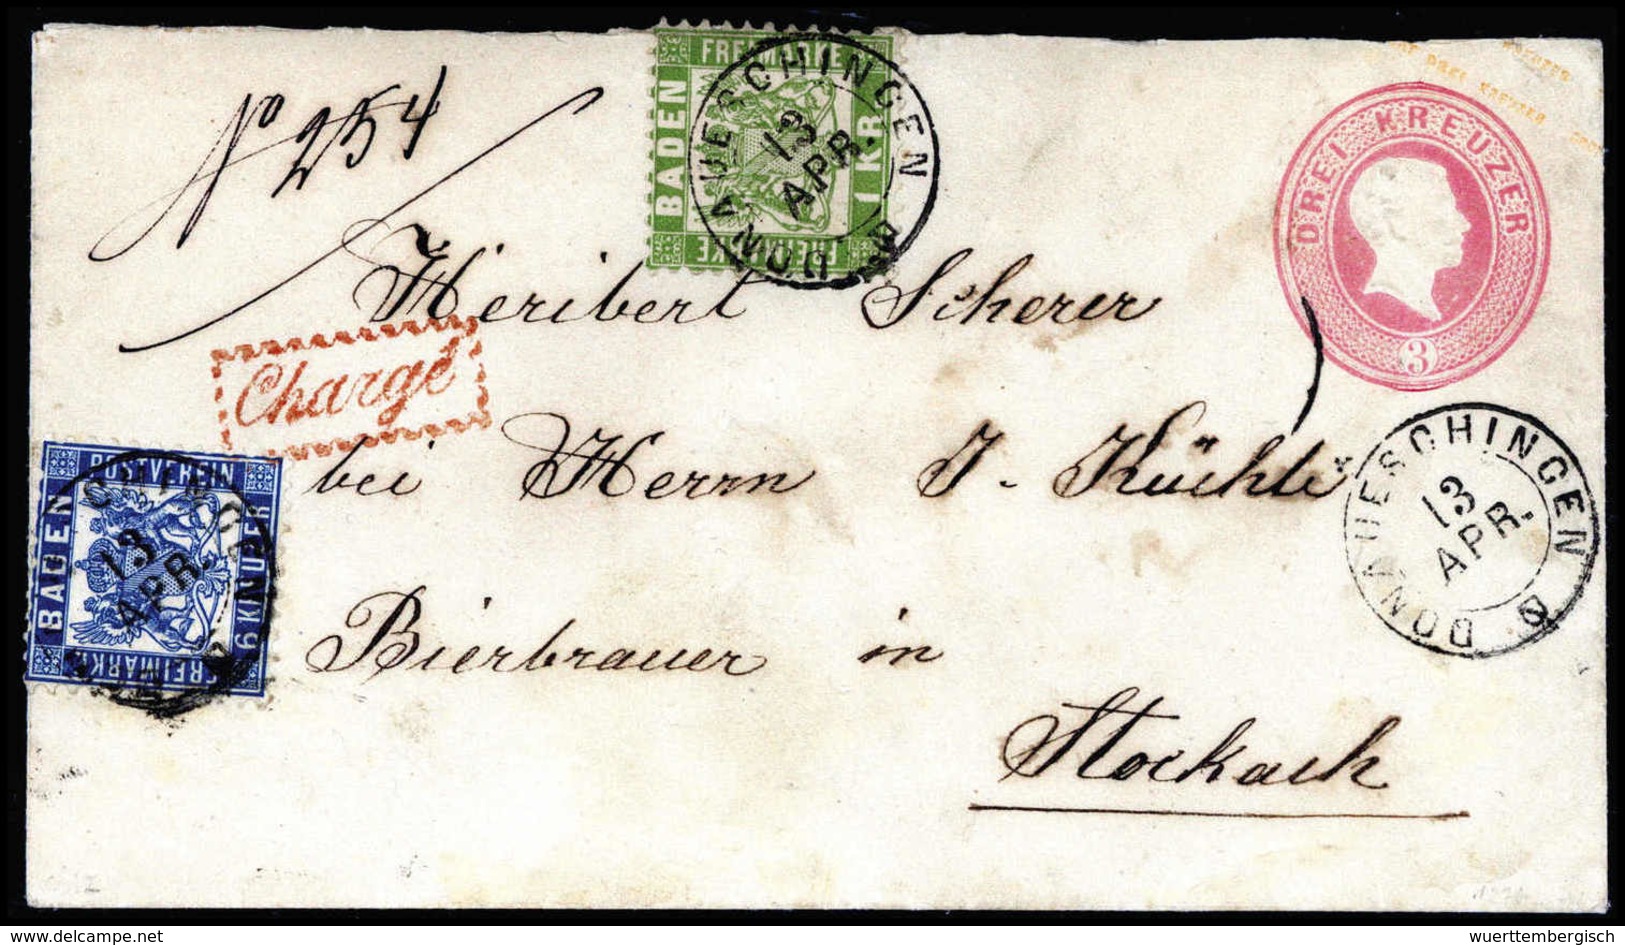 No 254
FREIMARKE
BADEN
1 KR.
FREIMARKE
DONAUESCHINGEN
13
APR.
DREI KREUZER
3
Heribert Scherer
Chargé
bei Herrn J. Küchle
POSTVEREIN
BADEN
6 KREUZER
FREIMARKE
13
APR.
DONAUESCHINGEN
13
APR.
Bierbrauer in
Stockach
delcampe.net
wuerttembergisch